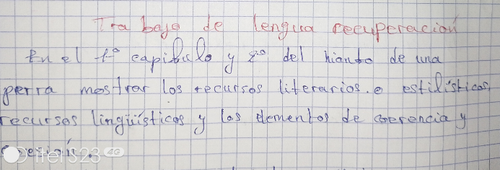 Trabajo de lengua recuperación
En el 1º capitulo y 2º del hiando de una
perra mostrar los recursos literarios o estilísticos,
recursos lingüísticos y los elementos de coerencia y